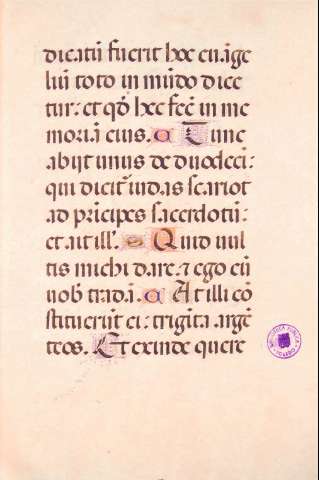 dicatū fuerit hoc euāge
liū toto in mūdo dice
tur: et qđ hec fec̄ in me
moriā eius. Tunc
abijt unus de duodeci:
qui dicit̄ iudas scariot
ad prīcipes sacerdotū:
et ait ill'. Quid uul
tis michi dare. ⁊ ego eū
uob̄ tradā. At illi cō
stituerūt ei: trigīta argē
teos. Et exinde quere